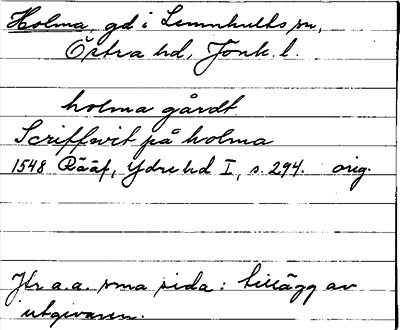 Holma, gd i Lemnhults sn,
Östra hd, Jönk. l.
holma gårdt
Scriffwit på holma
1548 Rääf, Ydre hd I, s. 294. orig.
Jfr a.a. sma sida: tillägg av
utgivaren.